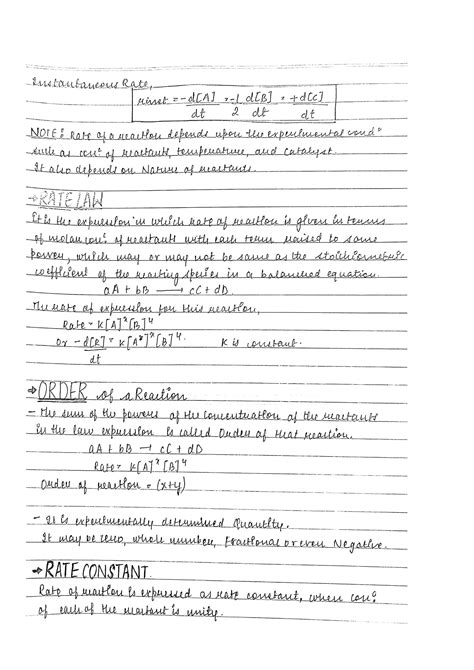 Instantaneous Rate,
rinst = -d[A]/dt = -1/2 d[B]/dt = +d[C]/dt
NOTE: Rate of a reaction depends upon the experimental condⁿ
such as conⁿ of reactants, temperature, and catalyst.
It also depends on Nature of reactants.
→ RATE LAW
It is the expression in which rate of reaction is given in terms
of molar conⁿ. of reactants with each term raised to some
power, which may or may not be same as the stoichiometric
coefficient of the reacting species in a balanced equation.
aA + bB → cC + dD
The rate of expression for this reaction,
Rate = K[A]ˣ[B]ʸ
or -d[R]/dt = K[Aˣ]ˣ[B]ʸ. K is constant.
→ ORDER of a Reaction
- The sum of the powers of the concentration of the reactants
in the law expression is called Order of that reaction.
aA + bB → cC + dD
Rate = K[A]ˣ[B]ʸ
Order of reaction = (x+y)
- It is experimentally determined Quantity.
It may be zero, whole number, fractional or even Negative.
→ RATE CONSTANT.
Rate of reaction is expressed as rate constant, when conⁿ.
of each of the reactant is unity.